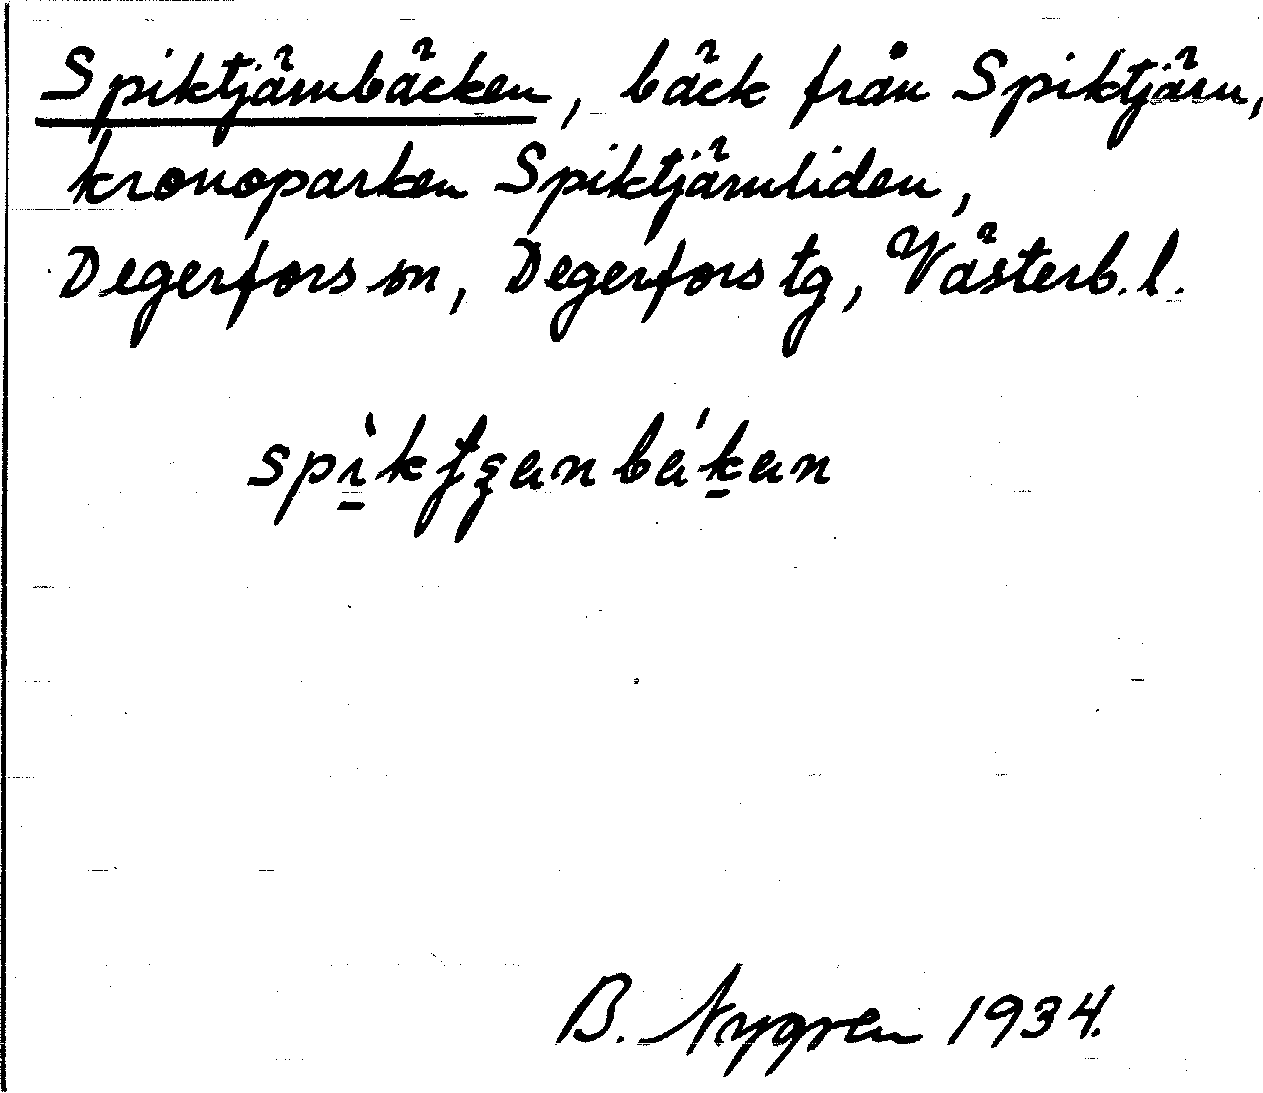 Spiktjärnbäcken, bäck från Spiktjärn,
kronoparken Spiktjärnliden,
Degerfors sn, Degerfors tg, Västerb. l.
B. Nygren 1934.